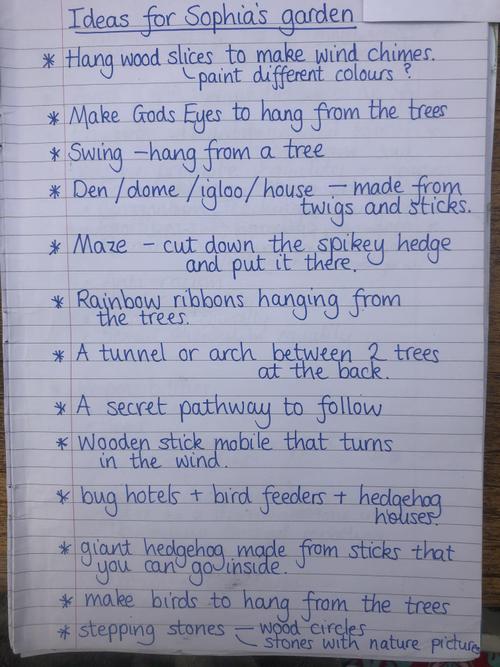 Ideas for Sophia's garden
* Hang wood slices to make wind chimes.
paint different colours?
* Make Gods Eyes to hang from the trees
* Swing - hang from a tree
* Den/dome/igloo/house - made from
twigs and sticks.
* Maze - cut down the spikey hedge
and put it there.
* Rainbow ribbons hanging from
the trees.
* A tunnel or arch between 2 trees
at the back.
* A secret pathway to follow
* Wooden stick mobile that turns
in the wind.
* bug hotels + bird feeders + hedgehog
houses.
* giant hedgehog made from sticks that
you can go inside.
* make birds to hang from the trees
* stepping stones - wood circles
- stones with nature pictures